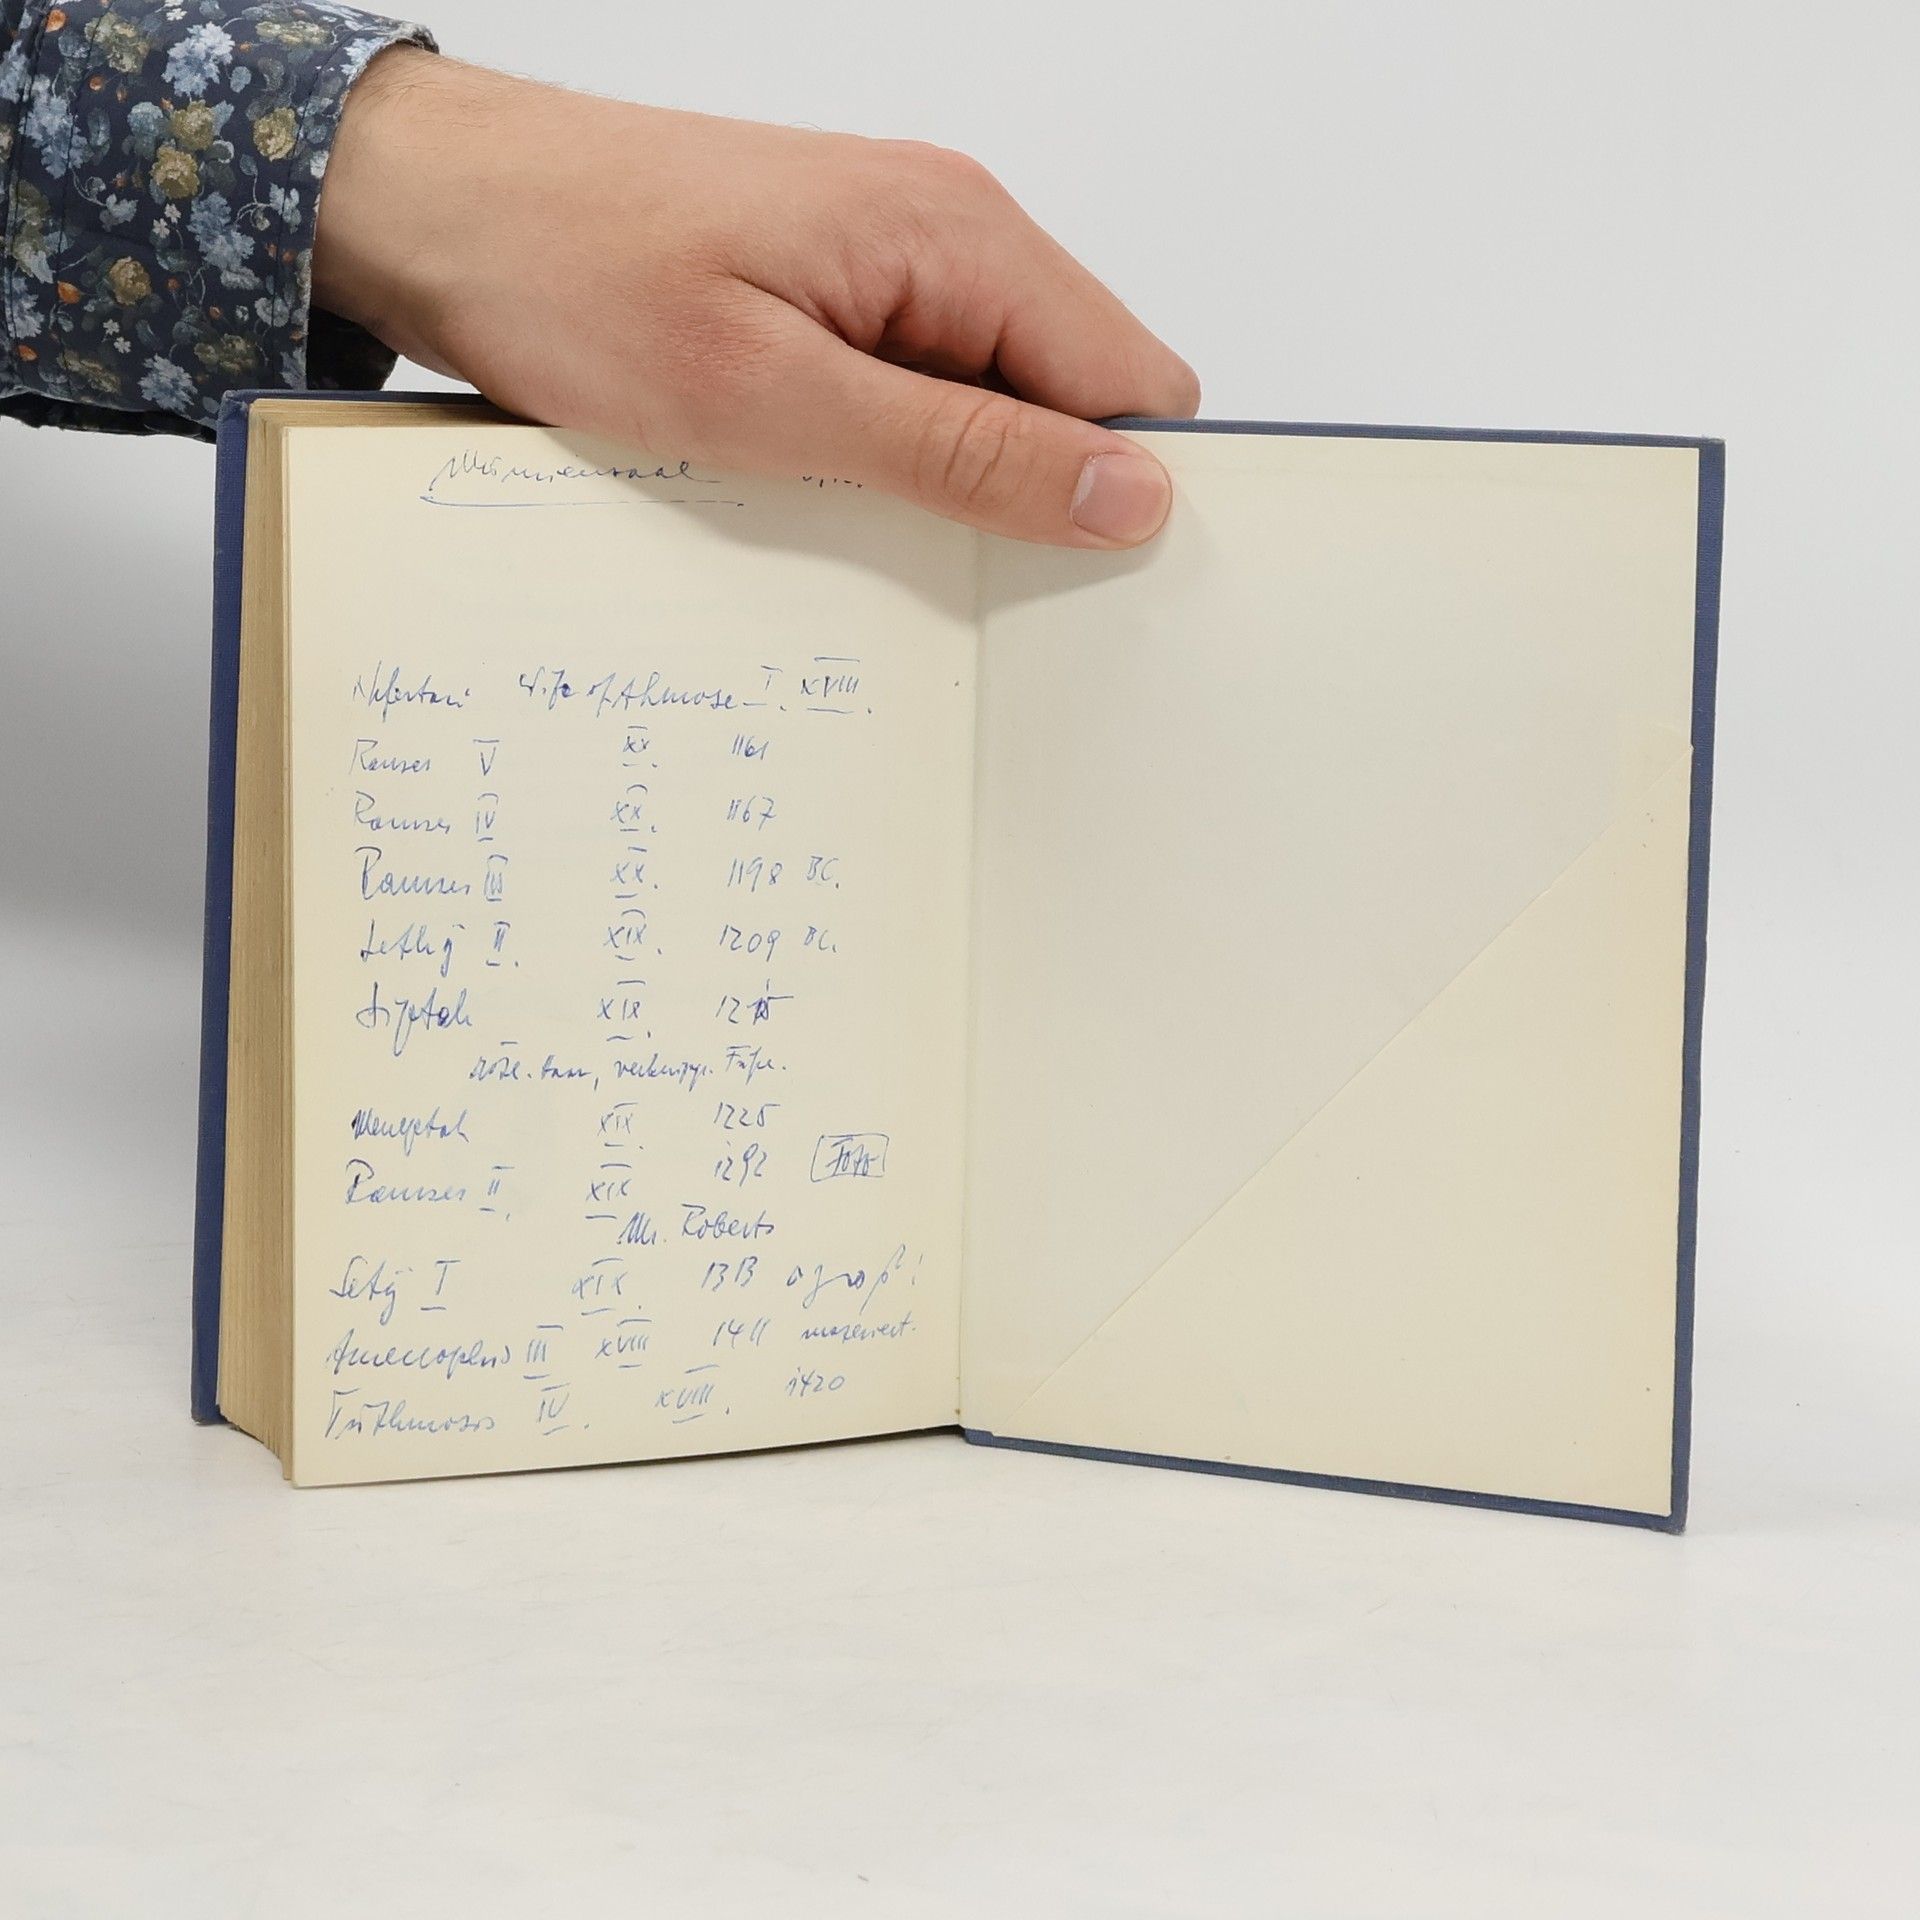 Mumiensaal
Nefertari Wife of Ahmose I. XVIII.
Ramses V XX. 1161
Ramses IV XX. 1167
Ramses III XX. 1198 BC.
Sethy II. XIX. 1209 BC.
Siptah XIX. 1215
Haar, verkrüpp. Füße.
Meneptah XIX. 1225
Ramses II. XIX 1292 Foto
Mr. Roberts
Sety I XIX. 1313 groß!
Amenophis III XVIII 1411
Tuthmosis IV. XVIII. 1420